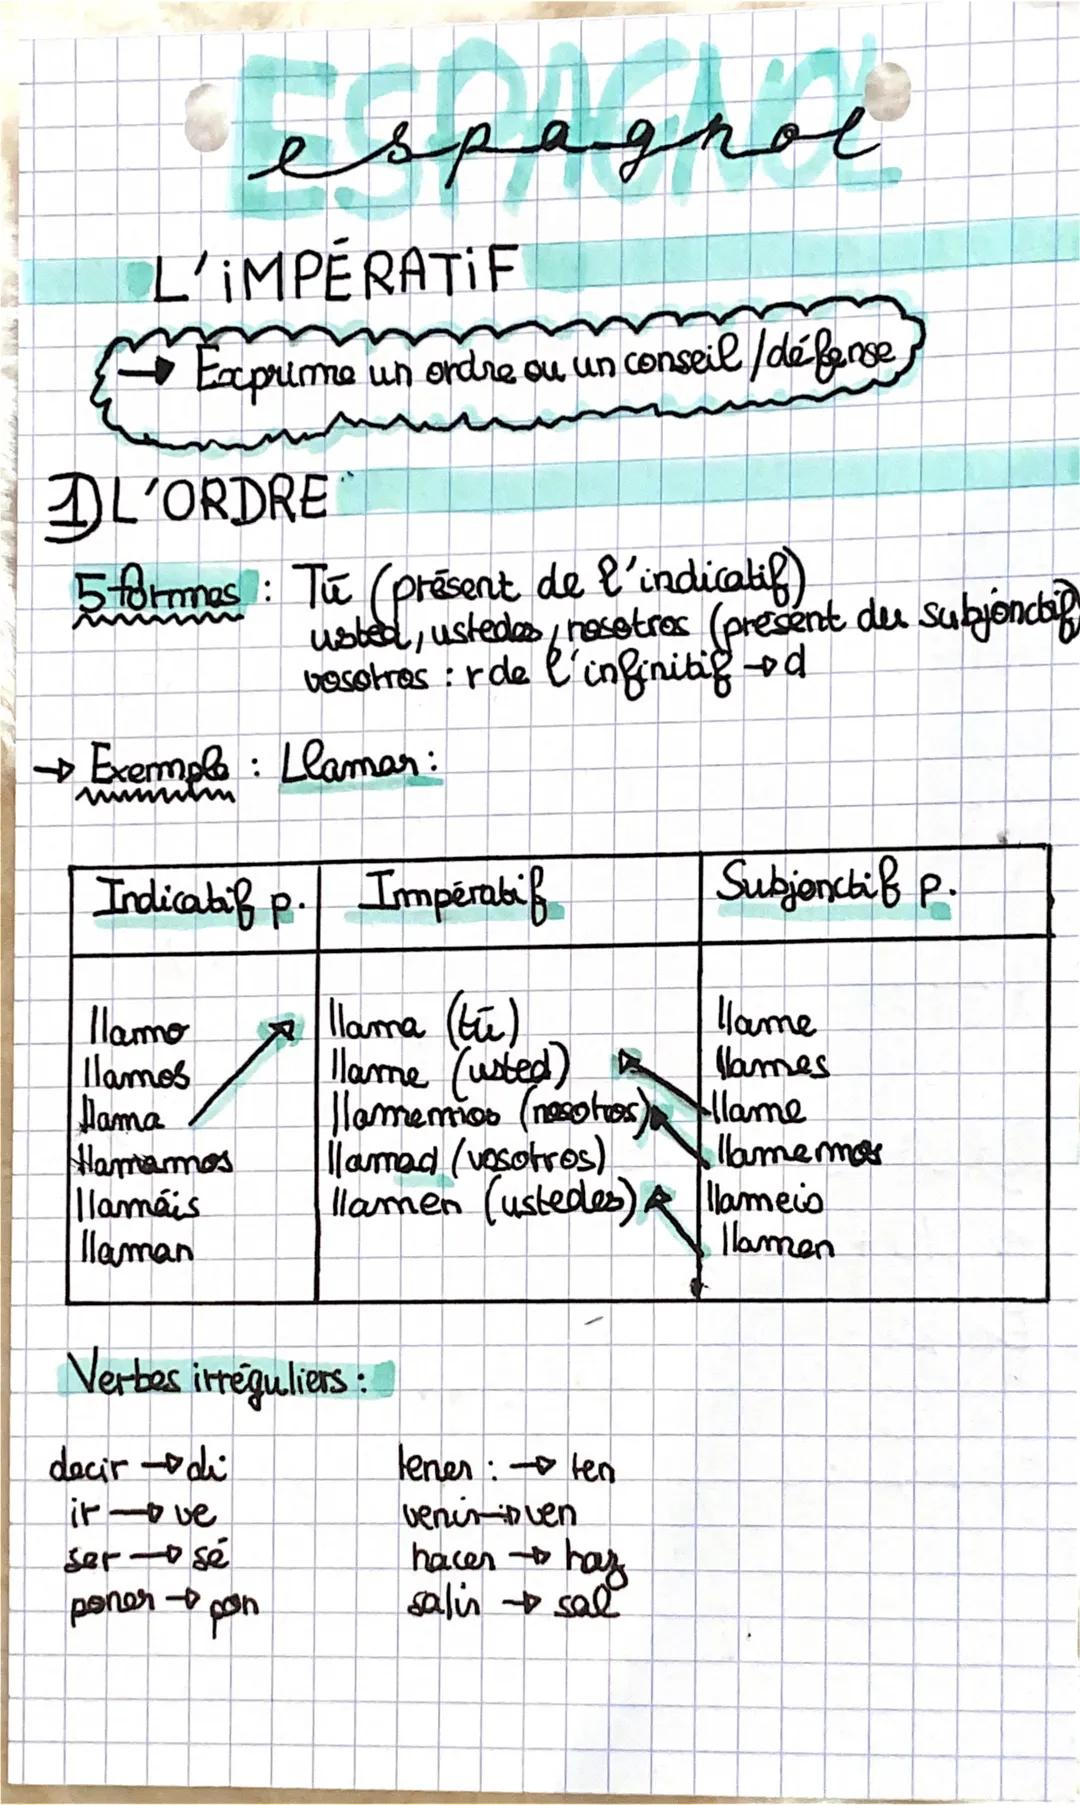 ESPAGNOL
espagnol
L'IMPÉRATIF
→ Exprime un ordre ou un conseil / défense
1) L'ORDRE
5 formes : Tú (présent de l'indicatif)
usted, ustedes, nosotros (présent du subjonctif)
vosotros : r de l'infinitif → d
→ Exemple : Llamar :
Indicatif p. | Impératif | Subjonctif p.
llamo | llama (tú) | llame
llamas | llame (usted) | llames
llama | llamemos (nosotros) | llame
llamamos | llamad (vosotros) | llamemos
llamáis | llamen (ustedes) | llameis
llaman | | llamen
Verbes irréguliers :
decir → di tener : → ten
ir → ve venir → ven
ser → sé hacer → haz
poner → pon salir → sal